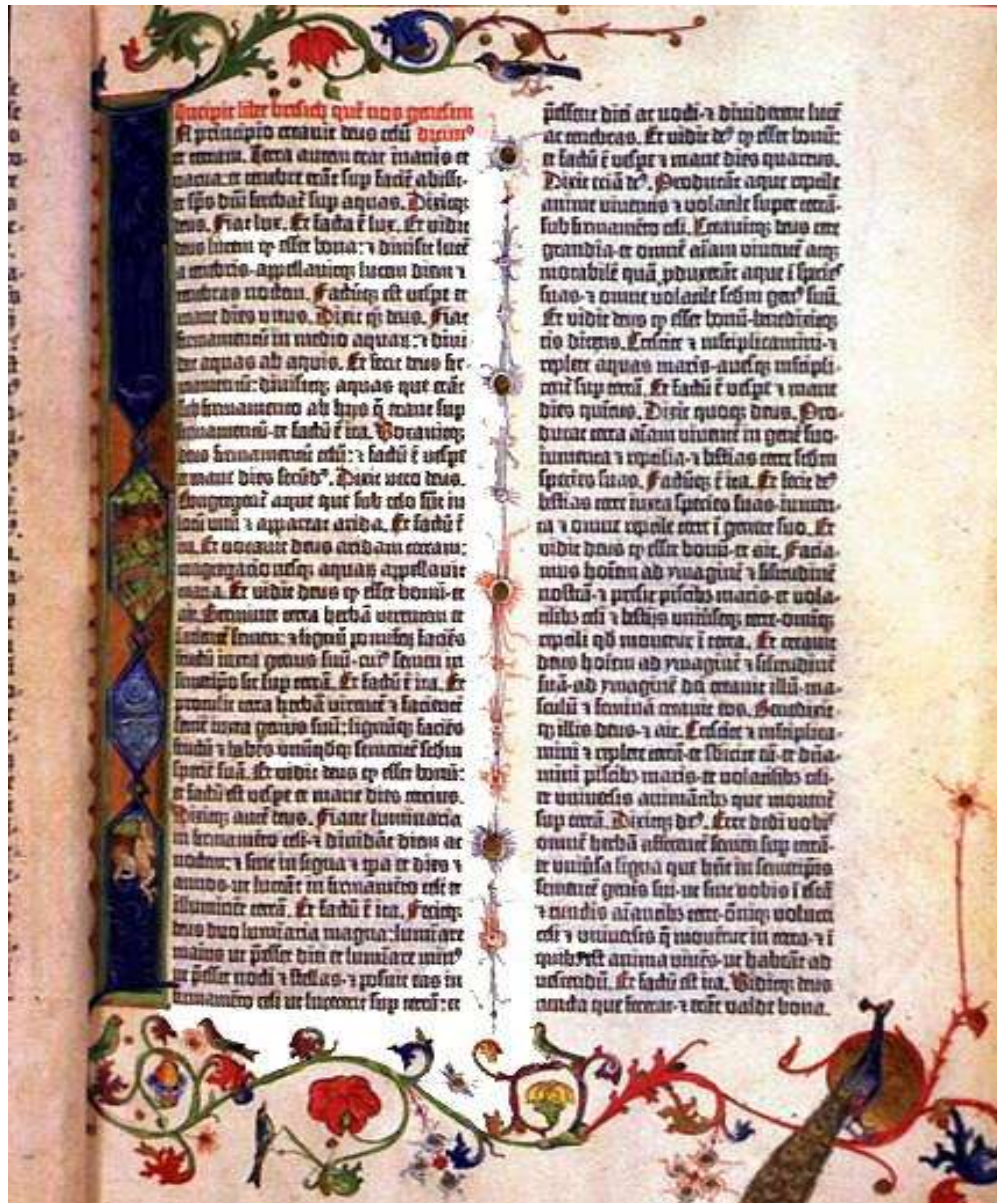 Incipit liber bresich quē nos genesim
A principio creavit deus celū dicimꝰ
et terram. Terra autem erat inanis et
vacua: et tenebre erāt sup faciē abissi:
et spūs dñi ferebat̄ sup aquas. Dixitqꝫ
deus. Fiat lux. Et facta ē lux. Et vidit
deus lucem ꝙ esset bona: ⁊ divisit lucē
a tenebris·appellavitqꝫ lucem diem ⁊
tenebras noctem. Factūqꝫ est vespe et
mane dies unus. Dixit qꝫ deus. Fiat
firmamentū in medio aquaꝝ: ⁊ divi
dat aquas ab aquis. Et fecit deus fir-
mamentū: divisitqꝫ aquas que erāt
sub firmamento ab hijs q̄ erant sup
firmamentū·et factū ē ita. Vocavitqꝫ
deus firmamentū celū: ⁊ factū ē vespe
et mane dies secūdꝰ. Dixit vero deus.
Congregent̄ aque que sub celo sūt in
locū unū ⁊ appareat arida. Et factū ē
ita. Et vocavit deus aridam terram:
congregacionesqꝫ aquaꝝ appellavit
maria. Et vidit deus ꝙ esset bonū·et
ait. Germinet terra herbā virentem et
facientē semen: ⁊ lignū pomiferū faciēs
fructū iuxta genus suū·cuiꝰ semen in
semetipō sit sup terrā. Et factū ē ita. Et
protulit terra herbā virentē ⁊ facientē
semē iuxta genus suū: lignūqꝫ faciēs
fructū ⁊ habēs unūqdqꝫ sementē scdm
speciē suā. Et vidit deus ꝙ esset bonū:
et factū est vespe et mane dies tercius.
Dixitqꝫ autē deus. Fiant luminaria
in firmamēto celi·⁊ dividāt diem ac
noctem: ⁊ sint in signa ⁊ tpa et dies ⁊
annos·ut luceāt in firmamēto celi et
illuminēt terrā. Et factū ē ita. Fecitqꝫ
deus duo luminaria magna: lumiare
maius ut pesset diei et lumiare minꝰ
ut pesset nocti ⁊ stellas·⁊ posuit eas in
firmamēto celi ut lucerent sup terrā: et
pessent diei ac nocti·⁊ dividerent lucē
ac tenebras. Et vidit deꝰ ꝙ esset bonū:
et factū ē vespe ⁊ mane dies quartus.
Dixit eciā deꝰ. Producāt aque reptile
anime viventis ⁊ volatile super terrā·
sub firmamēto celi. Creavitqꝫ deus cete
grandia·et omnē aīam viventē atqꝫ
motabilē quā pduxerāt aque ī species
suas·⁊ omne volatile scdm genꝰ suū.
Et vidit deus ꝙ esset bonū·benedixitqꝫ
eis dicens. Crescite ⁊ multiplicamini·⁊
replete aquas maris·avesqꝫ multipli-
cent̄ sup terrā. Et factū ē vespe ⁊ mane
dies quītus. Dixit quoqꝫ deus. Pro-
ducat terra aīam viventē in genē suo·
iumenta ⁊ reptilia·⁊ bestias terre scdm
species suas. Factūqꝫ ē ita. Et fecit deꝰ
bestias terre iuxta species suas·iumen-
ta ⁊ omne reptile terre ī genere suo. Et
vidit deus ꝙ esset bonū·et ait. Facia-
mus hoīem ad ymaginē ⁊ silitudinē
nostrā·⁊ presit piscibꝫ maris·et vola-
tilibꝫ celi ⁊ bestijs universeqꝫ terre·omniqꝫ
reptili qd movetur ī terra. Et creavit
deus hoīem ad ymaginē ⁊ silitudinē
suā·ad ymaginē dei creavit illū·ma-
sculū ⁊ feminā creavit eos. Benedixitqꝫ
illis deus·⁊ ait. Crescite ⁊ multiplica-
mini ⁊ replete terrā·et subicite eā·et dña-
mini piscibꝫ maris·et volatilibꝫ celi·
et universis animātibꝫ que movent̄
sup terrā. Dixitqꝫ deꝰ. Ecce dedi vobis
omnē herbā afferentē semen sup terrā·
et universa ligna que habēt in semetipsis
sementē genīs sui·ut sint vobis ī escā
⁊ cunctis aīantibꝫ terre·omiqꝫ volucri
celi ⁊ universis q̄ movētur in terra·⁊ ī
quibꝰ est anima vivēs·ut habeāt ad
vescendū. Et factū est ita. Viditqꝫ deus
cuncta que fecerat·⁊ erāt valde bona.